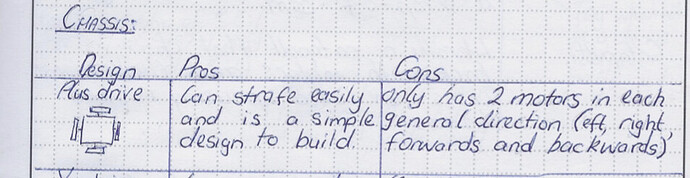 CHASSIS:
Design Pros Cons
Plus drive Can strafe easily only has 2 motors in each
and is a simple general direction (left, right,
design to build. forwards and backwards)